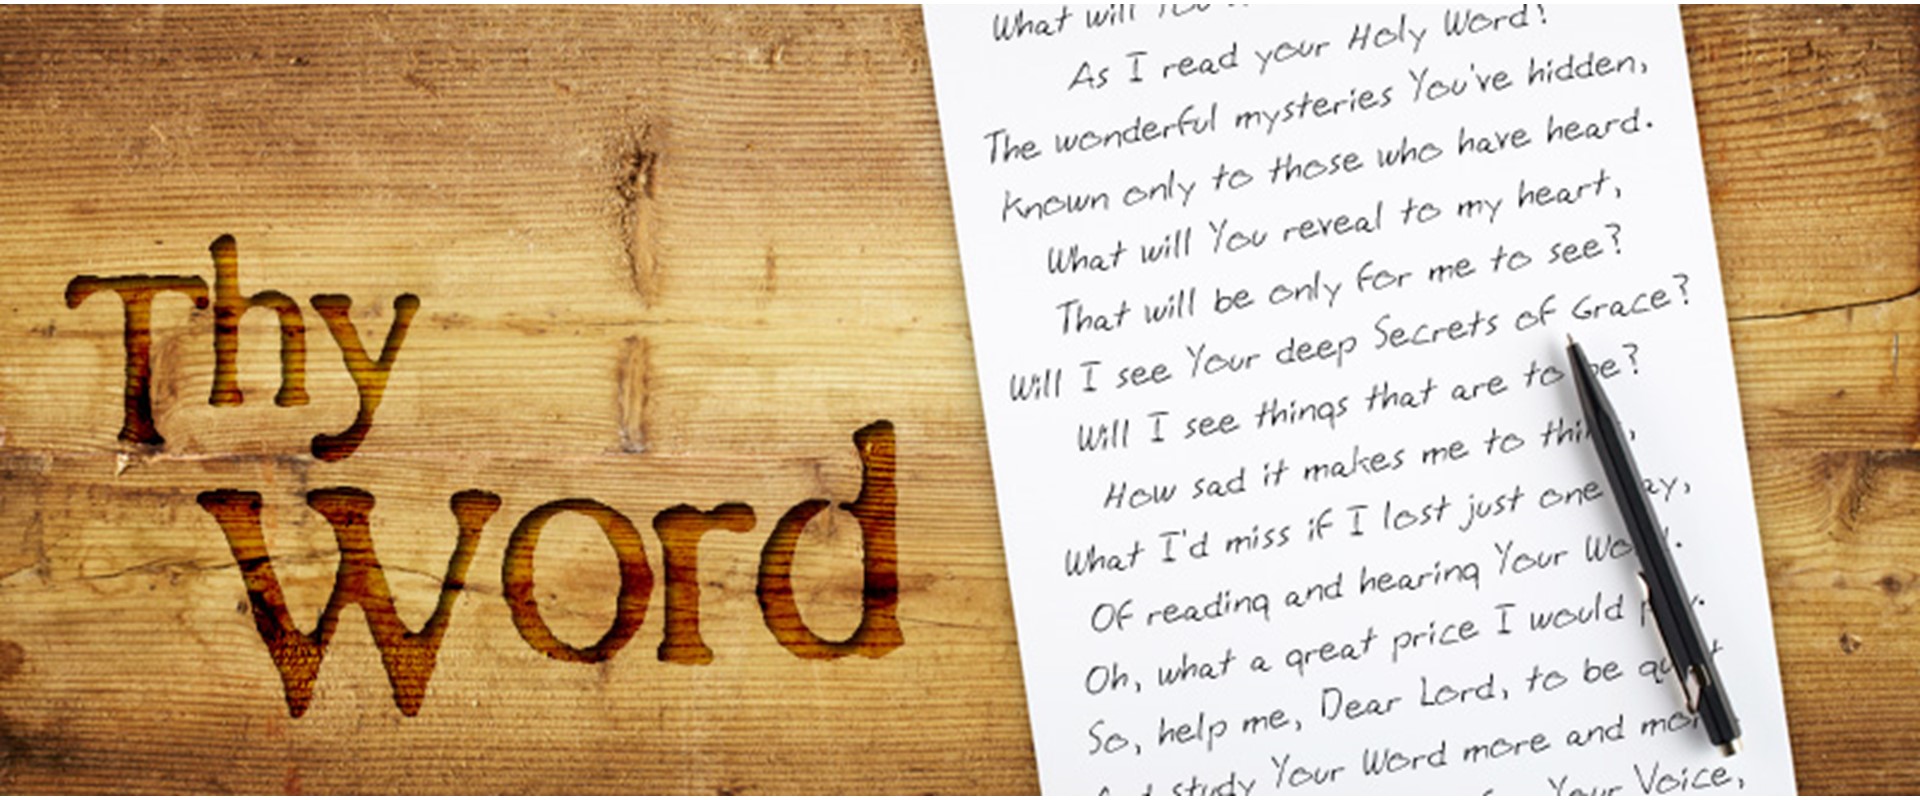 Thy
Word
What will
As I read your Holy Word!
The wonderful mysteries You've hidden,
Known only to those who have heard.
What will You reveal to my heart,
That will be only for me to see?
Will I see Your deep Secrets of Grace?
Will I see things that are to be?
How sad it makes me to
What I'd miss if I lost just one
Of reading and hearing Your
Oh, what a great price I would
So, help me, Dear Lord, to be
study Your Word more and
Your Voice,